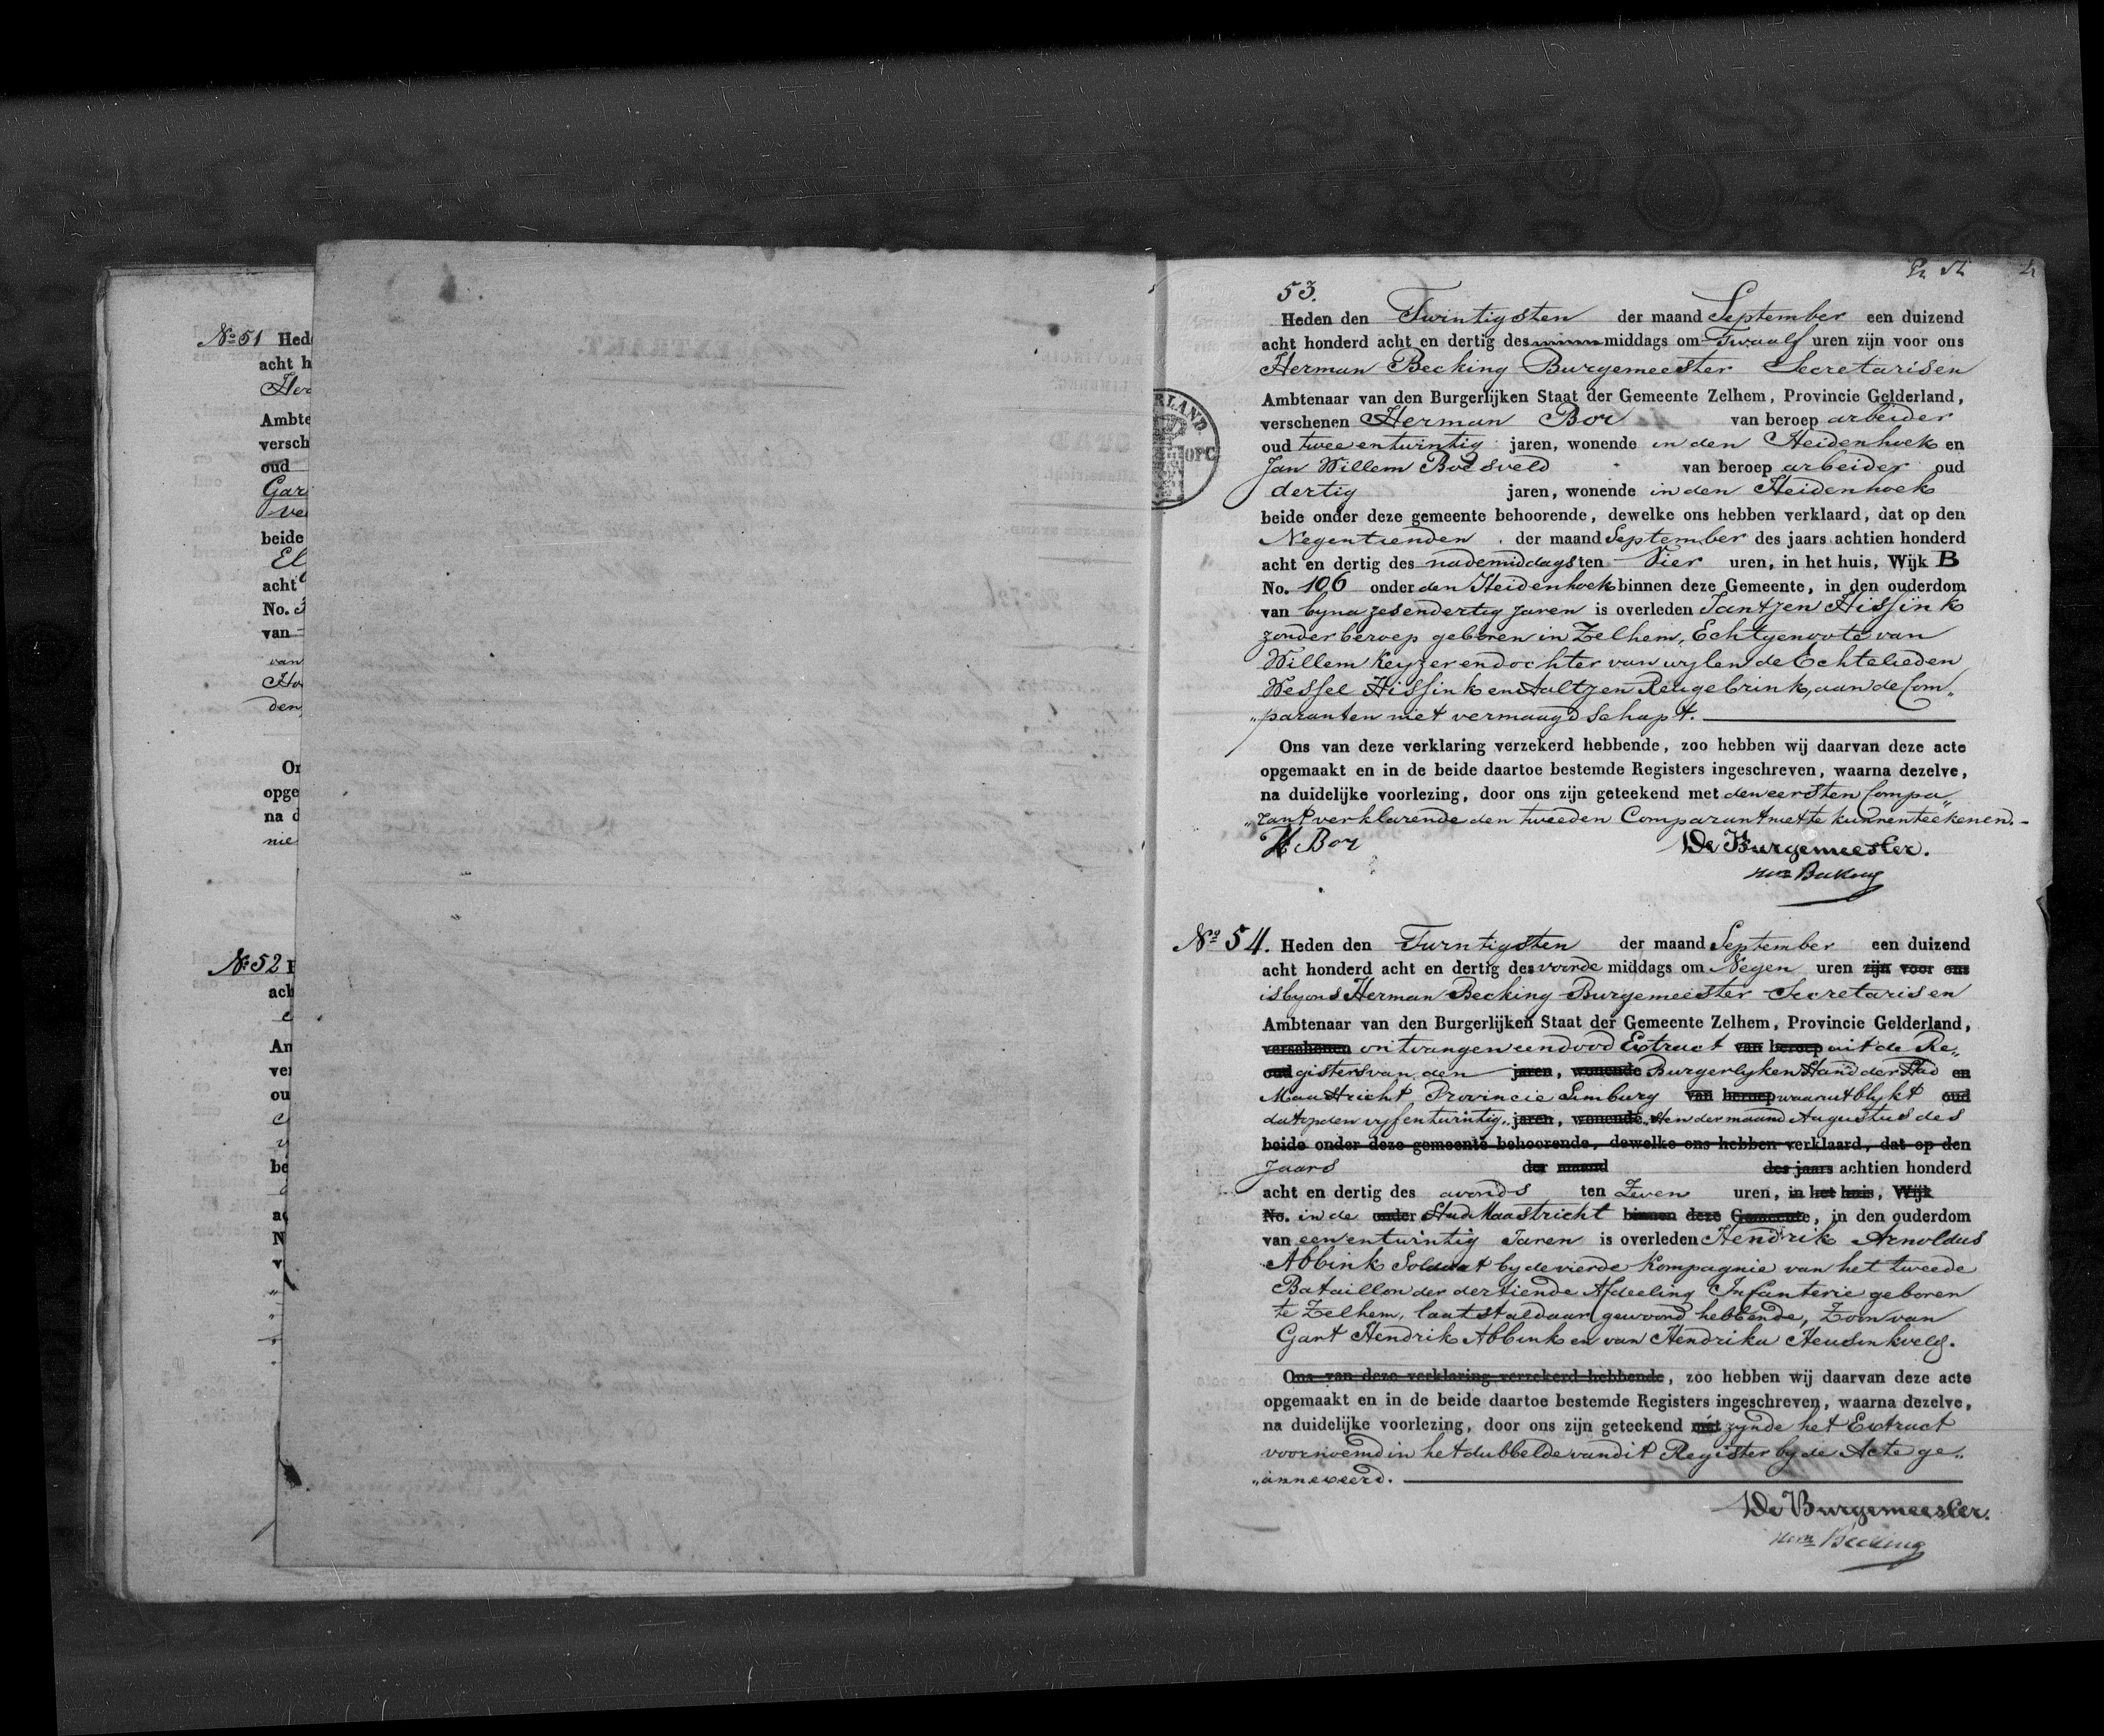 No 51 Hed
acht h
Her
Ambte
versch
oud
Gar
ve
beide
El
acht
No. 3
van
van
Ho
den,
Or
opge
na d
nie
No 52 H
ach
An
ver
ou
be
a
N
v
53.
Heden den Twintigsten der maand September een duizend
acht honderd acht en dertig des middags om Twaalf uren zijn voor ons
Herman Becking Burgemeester Secretaris en
Ambtenaar van den Burgerlijken Staat der Gemeente Zelhem, Provincie Gelderland,
verschenen Herman Bor van beroep arbeider
oud twee en twintig jaren, wonende in den Heidenhoek en
Jan Willem Boesveld van beroep arbeider oud
dertig jaren, wonende in den Heidenhoek
beide onder deze gemeente behoorende, dewelke ons hebben verklaard, dat op den
Negentienden der maand September des jaars achtien honderd
acht en dertig des nademiddags ten Vier uren, in het huis, Wijk B
No. 106 onder den Heidenhoek binnen deze Gemeente, in den ouderdom
van byna zesendertig Jaren is overleden Jantjen Hissink
zonder beroep geboren in Zelhem, Echtgenoote van
Willem Keyzer en dochter van wylen de Echtelieden
Wessel Hissink en Aaltjen Reugebrink, aan de Com„
„paranten niet vermaagdschapt.
Ons van deze verklaring verzekerd hebbende, zoo hebben wij daarvan deze acte
opgemaakt en in de beide daartoe bestemde Registers ingeschreven, waarna dezelve,
na duidelijke voorlezing, door ons zijn geteekend met den eersten Compa„
„rant verklarende den tweeden Comparant niet te kunnen teekenen.
H Bor De Burgemeester.
Hm Becking
No 54. Heden den Twintigsten der maand September een duizend
acht honderd acht en dertig des voorde middags om Negen uren zijn voor ons
is by ons Herman Becking Burgemeester Secretaris en
Ambtenaar van den Burgerlijken Staat der Gemeente Zelhem, Provincie Gelderland,
verschenen ontvangen een dood Extract van beroep uit de Re„
oud gisters van den jaren, wonende Burgerlyken Stand der Stad en
Maastricht Provincie Limburg van beroep waaruit blykt oud
dat op den vyfentwintig„ jaren, wonende „sten der maand Augustus des
beide onder deze gemeente behoorende, dewelke ons hebben verklaard, dat op den
Jaars der maand des jaars achtien honderd
acht en dertig des avonds ten Zeven uren, in het huis, Wijk
No. in de onder Stad Maastricht binnen deze Gemeente, in den ouderdom
van een en twintig Jaren is overleden Hendrik Arnoldus
Abbink Soldaat by de vierde Kompagnie van het tweede
Bataillon der dertiende Afdeeling Infanterie geboren
te Zelhem, laatst aldaar gewoond hebbende, Zoon van
Gart Hendrik Abbink en van Hendrika Heusinkveld.
Ons van deze verklaring verzekerd hebbende, zoo hebben wij daarvan deze acte
opgemaakt en in de beide daartoe bestemde Registers ingeschreven, waarna dezelve,
na duidelijke voorlezing, door ons zijn geteekend met zynde het Extract
voornoemd in het dubbelde van dit Register by de Acte ge„
„annexeerd.
De Burgemeester.
Hm Becking